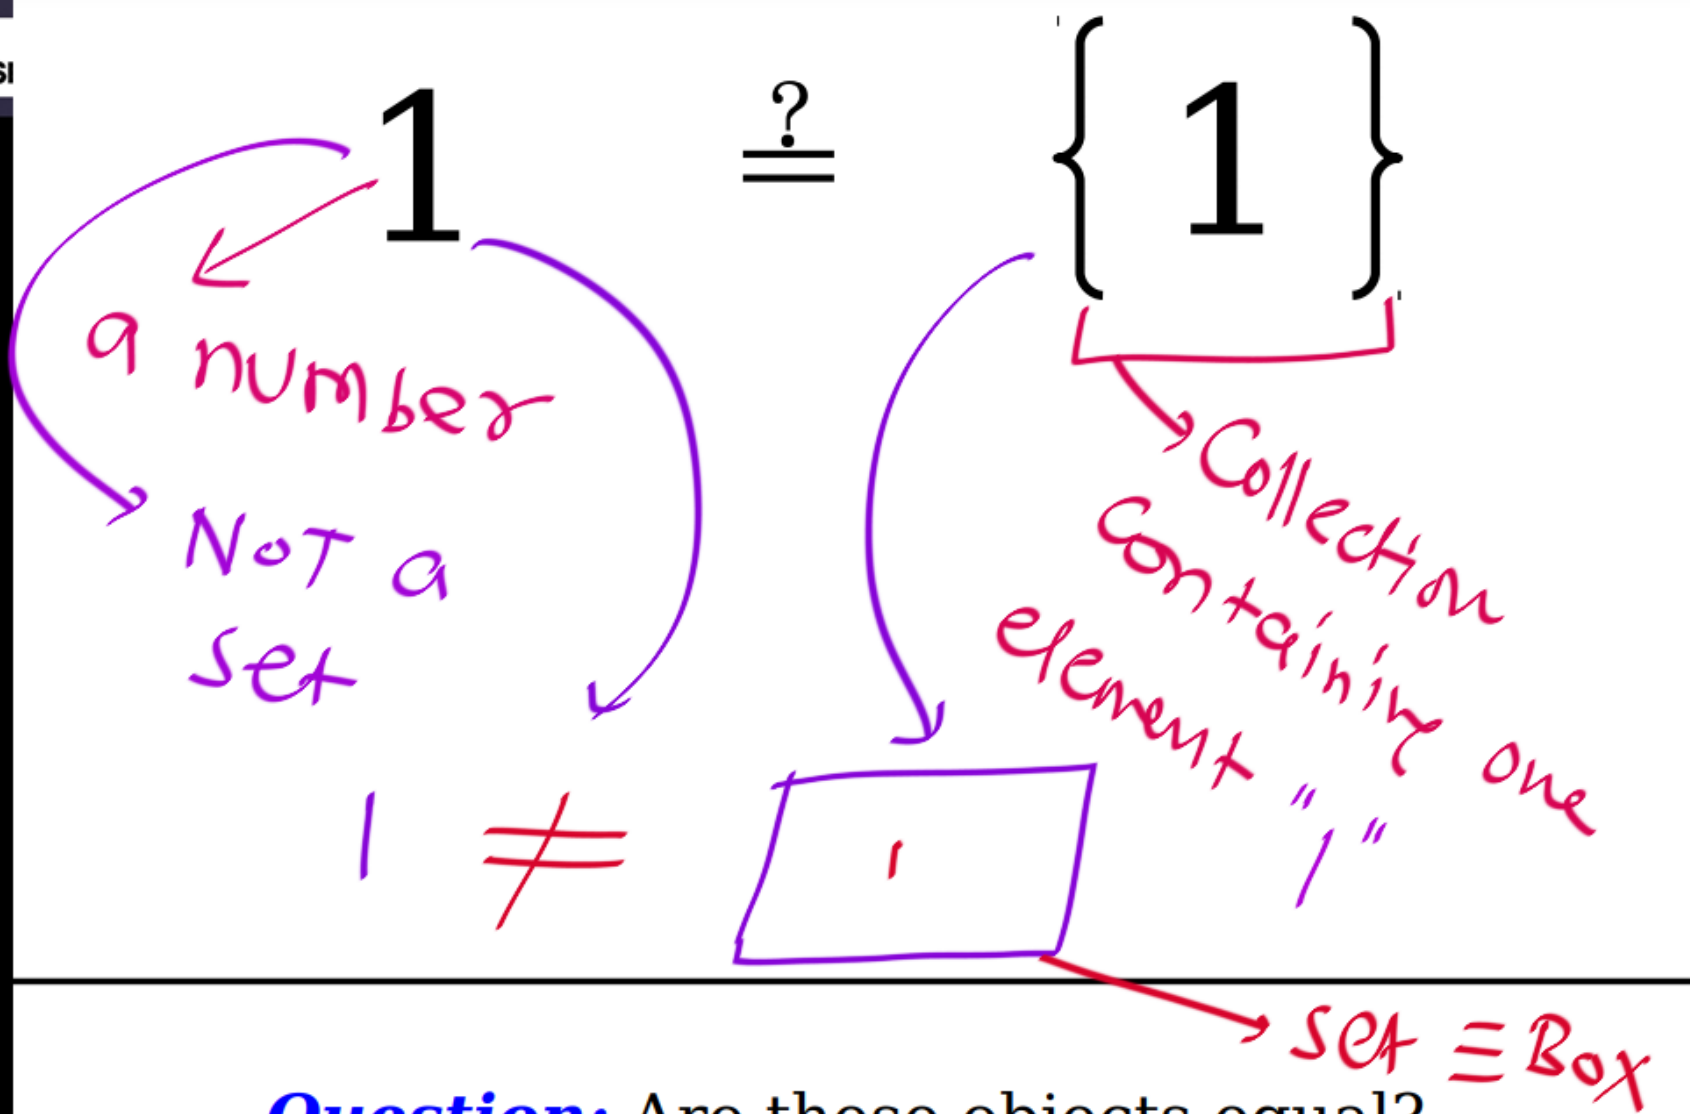 1 ≟ { 1 }
a number
NOT a
set
Collection
containing one
element "1"
1 ≠ 1
set ≡ Box
Question: Are these objects equal?